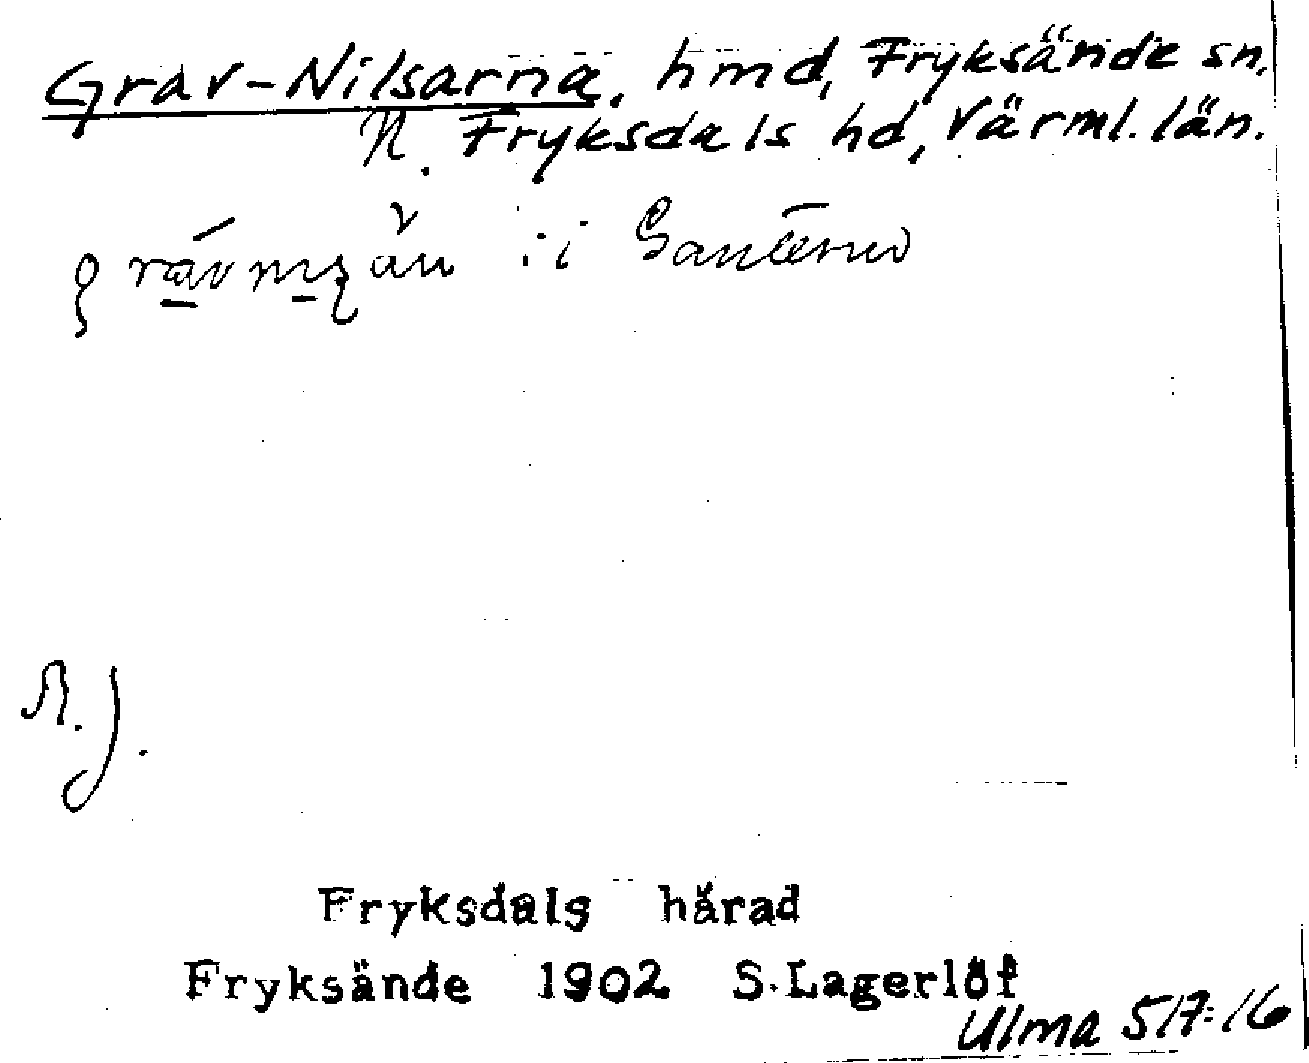 Grav-Nilsarna, hmd, Fryksände sn,
N. Fryksdals hd, Värml. län.
i
N.J.
Fryksdals härad
Fryksände 1902 S.Lagerlöf
Ulma 517:16